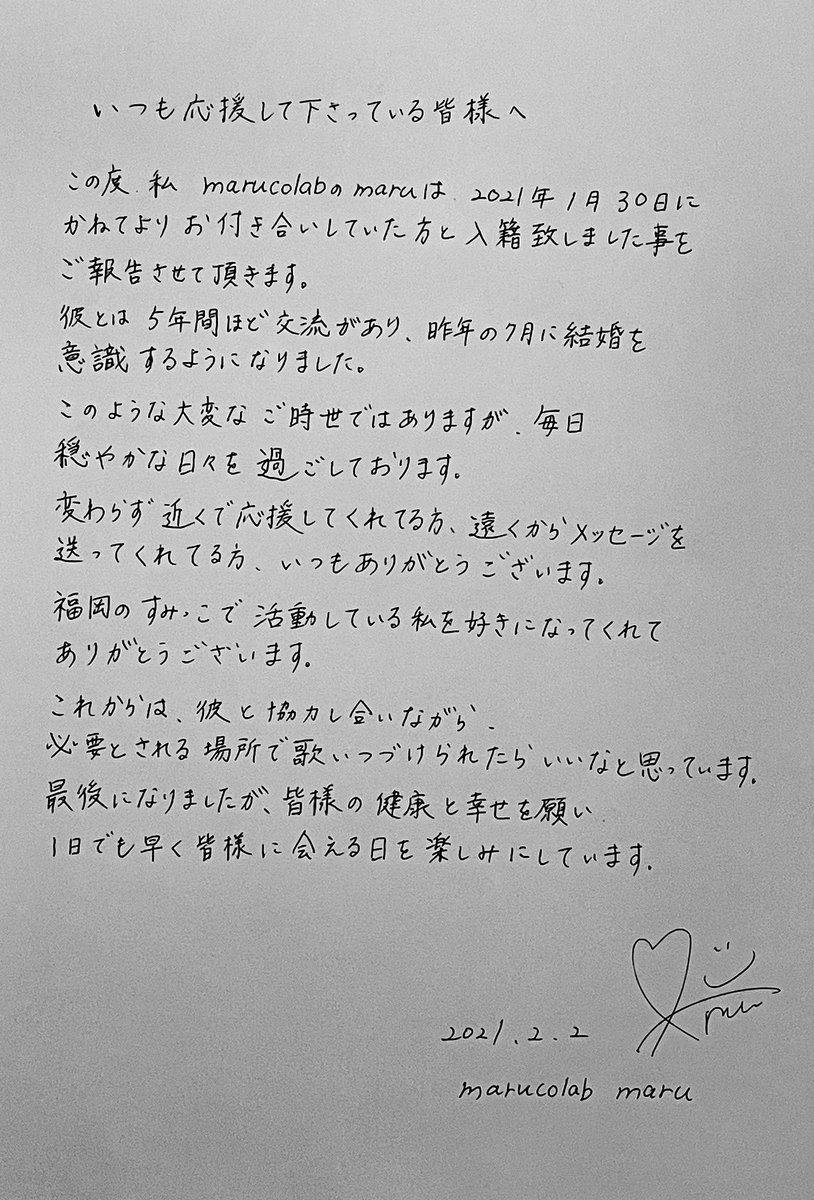 いつも応援して下さっている皆様へ
この度、私 marucolabのmaruは、2021年1月30日に
かねてより お付き合いしていた方と 入籍致しました事を
ご報告させて頂きます。
彼とは 5年間ほど 交流があり、昨年の7月に結婚を
意識するようになりました。
このような大変な ご時世ではありますが、毎日
穏やかな日々を 過ごしております。
変わらず 近くで応援してくれてる方、遠くからメッセージを
送ってくれてる方、いつもありがとうございます。
福岡の すみっこで 活動している私を好きになってくれて
ありがとうございます。
これからは、彼と協力し合いながら、
必要とされる場所で歌いつづけられたらいいなと思っています。
最後になりましたが、皆様の健康と幸せを願い
1日でも早く皆様に会える日を楽しみにしています。
2021.2.2
marucolab maru